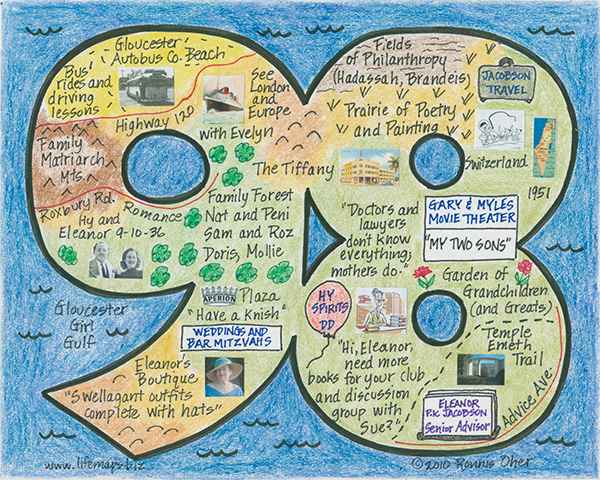 Gloucester
Autobus Co. Beach
Bus
rides and
driving
lessons
Highway 120
See
London
and
Europe
with Evelyn
Family
Matriarch
Mts.
Roxbury Rd.
Romance
Hy and
Eleanor 9-10-36
The Tiffany
Family Forest
Nat and Peni
Sam and Roz
Doris, Mollie
Gloucester
Girl
Gulf
APERION
Plaza
"Have a Knish"
WEDDINGS AND
BAR MITZVAHS
Eleanor's
Boutique
"Swellagant outfits
complete with hats"
Fields
of Philanthropy
(Hadassah, Brandeis)
JACOBSON
TRAVEL
Prairie of Poetry
and Painting
Switzerland
1951
"Doctors and
lawyers
don't know
everything,
mothers do."
GARY & MYLES
MOVIE THEATER
"MY TWO SONS"
Garden of
Grandchildren
(and Greats)
HY
SPIRITS
DD
"Hi, Eleanor,
need more
books for your club
and discussion
group with
Sue?"
Temple
Emeth
Trail
ELEANOR
P.K. JACOBSON
Senior Advisor
Advice Ave.
www.lifemaps.biz
©2010 Ronnie Oher